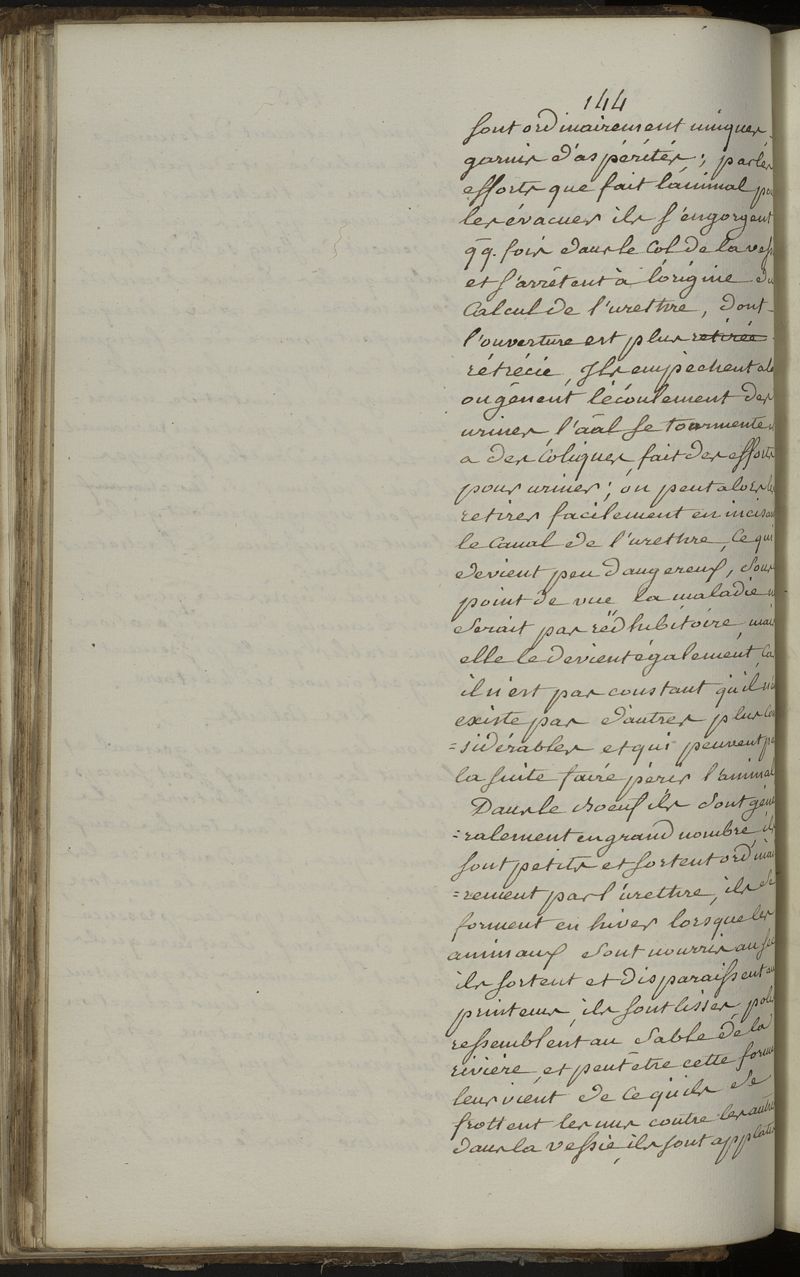 144
sont ordinairement uniques
garnis d'aspérités; par les
efforts que fait l'animal po
les évacuer ils s'engorgent
qq. fois dans le Col de la vess
et s'arrêtent à l'origine du
Calcul de l'urethre, dont
l'ouverture est plus retirée
rétrécie, Ils empêchent al
ou gênent l'écoulement des
urines, l'aâl se tourmente
a des Coliques, fait des efforts
pour uriner; on peut alors le
retirer facilement en incisant
le Canal de l'urethre, Ce qui
devient peu dangereux, Sous
point de vue la maladie n
serait pas rëdhibitoire, mais
elle le devient également, Ca
il n'est pas constant qu'il n'e
existe pas d'autres plus Con
=sidérables et qui peuvent pa
la suite faire périr l'animal
Dans le Boeuf ils sont géné
=ralement en grand nombre, ils
sont petits et sortent ordinai
=rement par l'urethre, ils se
forment en hiver lorsque les
animaux sont nourris au se
ils sortent et disparaissent au
printems, ils sont lisses, polis
ressemblent au Sable de la
rivière, et peut être cette forme
leur vient de ce qu'ils se
frottent les uns contre les autres
dans la vessie, ils sont applatis